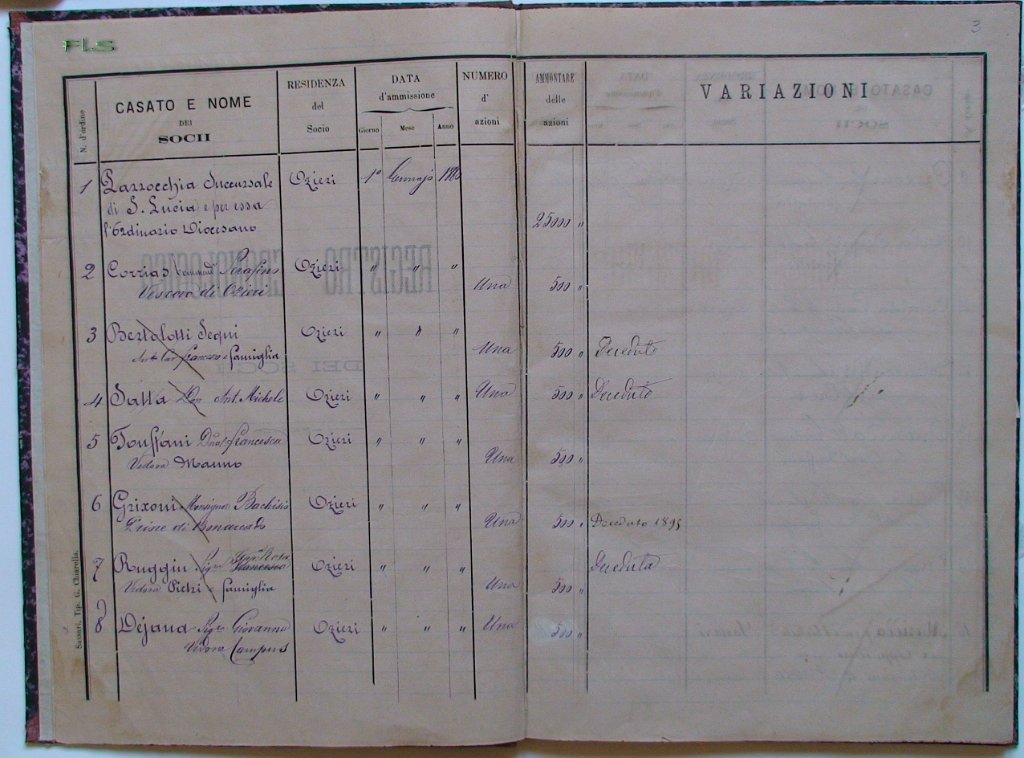 FLS
3
N. d'ordine
CASATO E NOME
DEI
SOCII
RESIDENZA
del
Socio
DATA
d'ammissione
Giorno Mese Anno
NUMERO
d'
azioni
AMMONTARE
delle
azioni
VARIAZIONI
1 Parrocchia Succursale Ozieri 1° 
di S. Lucia e per essa
l'Ordinario Diocesano 25000 "
2 Corrias Serafino Ozieri " " "
Vescovo di Ozieri Una 500 "
3 Bertolotti Segni Ozieri " " "
Francesco e famiglia Una 500 " Deceduto
4 Satta Don Ant. Michele Ozieri " " " Una 500 " Deceduto
5 Francesca Ozieri " " "
Vedova Manno Una 500 "
6 Grixoni Monsignor Bachisio Ozieri " " "
Priore di Bonarcado Una 500 " Deceduto 1895
7 Ruggiu Sigra Francesca Ozieri " " " Deceduta
Vedova Pietri e famiglia Una 500 "
8 Dejana Sigra Giovanna Ozieri " " " Una 500 "
Vedova Campus
Sassari, Tip. G. Chiarella.